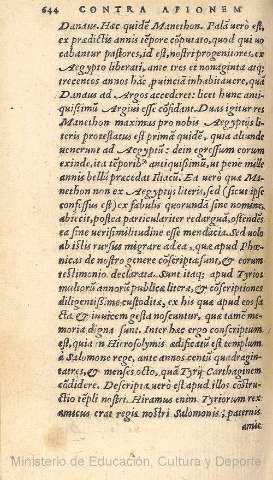 644 CONTRA APIONEM
Danaus. Hæc quidē Manethon. Palā uerò est,
ex prædictis annis tẽpore cõputato, quod qui uo
cabantur pastores, id est, nostri progenitores, ex
Aegypto liberati, ante tres et nonaginta atq;
trecentos annos hāc puinciā inhabitauere, quā
Danaus ad Argos accederet: licet hunc anti-
quissimū Argiui esse cõfidant. Duas igitur res
Manethon maximas pro nobis Aegyptijs li
teris protestatus est primū quidē, quia aliunde
uenerunt ad Aegyptū: dein egressum eorum
exinde, ita tẽporib⁹ antiquissimū, ut penè mille
annis belli præcedat Iliacū. Ea uerò quæ Ma
nethon non ex Aegyptijs literis, sed (sicut ipse
confessus est) ex fabulis quorundā sine nomine,
abiecit, postea particulariter redarguā, ostendēs
ea sine uerisimilitudine esse mendacia. Sed uolo
ab istis rursus migrare ad ea, quæ apud Phœ
nicas de nostro genere cõscripta sunt, & eorum
testimonio declarata. Sunt itaq; apud Tyrios
multorū annorū publicæ literæ, & cõscriptiones
diligentissimè custoditæ, ex his quæ apud eos fa
cta, & inuicem gesta noscuntur, quæ tamē me-
moria digna sunt. Inter hæc ergo conscriptum
est, quia in Hierosolymis ædificatū est templum
à Salomone rege, ante annos centū quadragin-
ta tres, & menses octo, quā Tyrij Carthaginem
cõdidere. Descripta uerò est apud illos cõstru-
ctio tẽpli nostri. Hiramus enim Tyriorum rex
amicus erat regis nostri Salomonis, paternis
amic
Ministerio de Educación, Cultura y Deporte